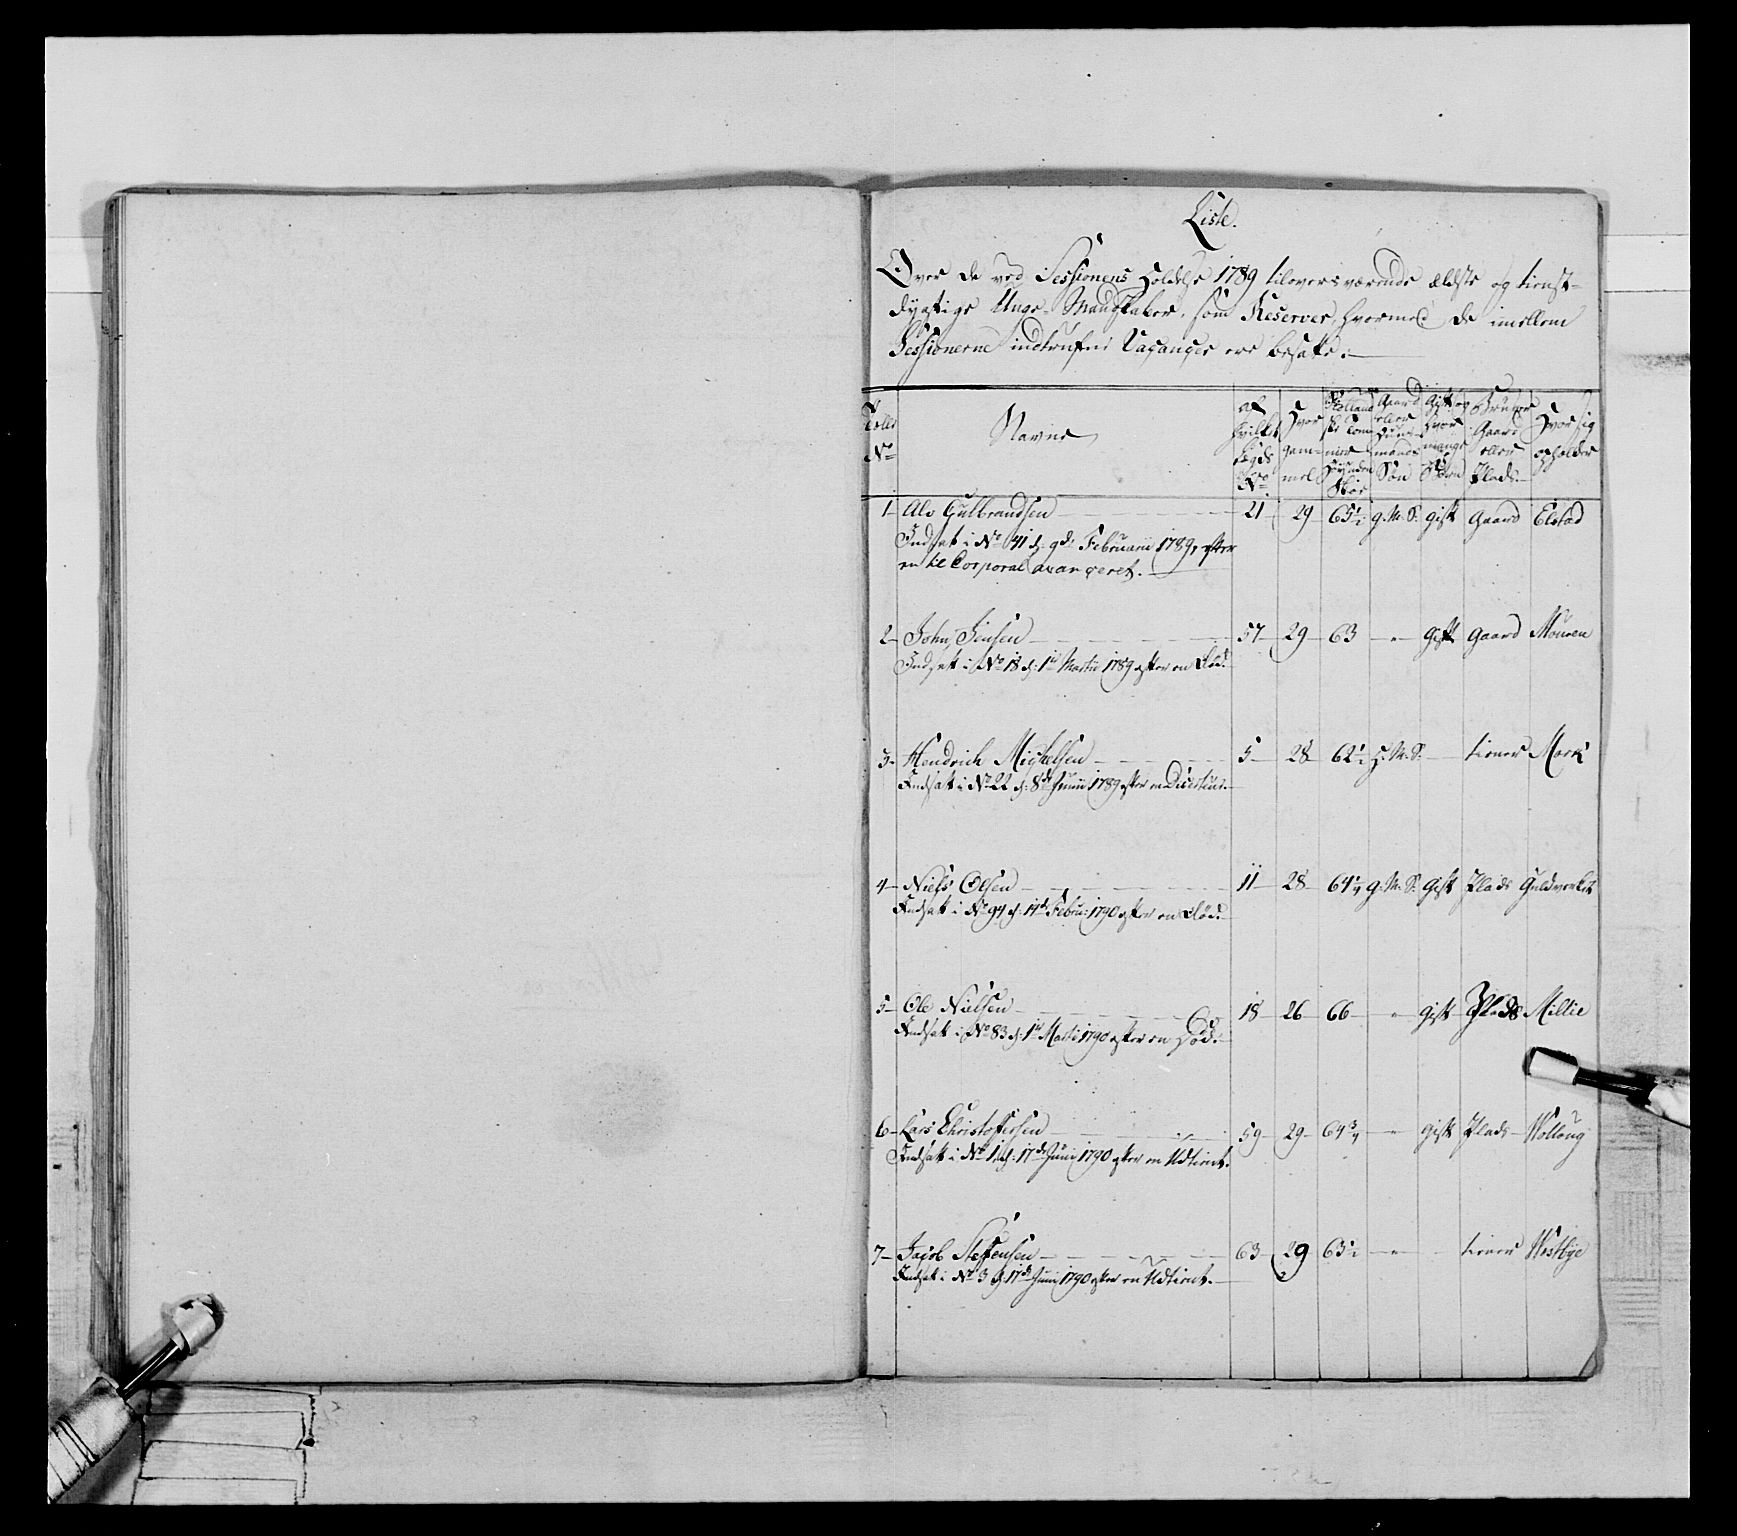 Liste.
Over de ved Sessionens Holdelse 1789 tiloversværende ældste og tienst-
dygtige Unge-Mandskaber, som Reserver, hvormed de imellem
Sessionerne indtrufne Vacancer ere besatte:
Tolle No Navne af hvilket Lægds No Hvor gam-mel Hvor mange Børn Bruger Gaard eller Plads. Hvor sig opholder
1 Alv Gulbrandsen 21 29 65½ g. M. S: gift gaard Elstad
Indsat i No 41 d: 9de Februarii 1789, efter
en til Corporal avanceret.
2 John Jensen 57 29 63 " gift gaard Mouren
Indsat i No 18 d: 1te Martii 1789 efter en Død.
3 Hendrich Michelsen 5 28 62½ H. M. S. tiener Mork
Indsatt i No 22 d: 8de Junii 1789 efter en Deserteur.
4 Niels Olsen 11 28 64¼ g. M. S. gift Plads Guldverket
Indsatt i No 94 d: 14de Febru: 1790 efter en Død.
5 Ole Nielsen 18 26 66 " gift Plads Miltie
Indsatt i No 83 d: 1te Marti 1790 efter en Død.
6 Lars Christophersen 59 29 64¾ " gift Plads Wolloug
Indsatt i No 1, d: 17de Junii 1790 efter en Udtient.
7 Jacob Steffensen 63 29 63½ " tiener Westbye
Indsat i No 3 d: 17de Junii 1790 efter en Udtient.